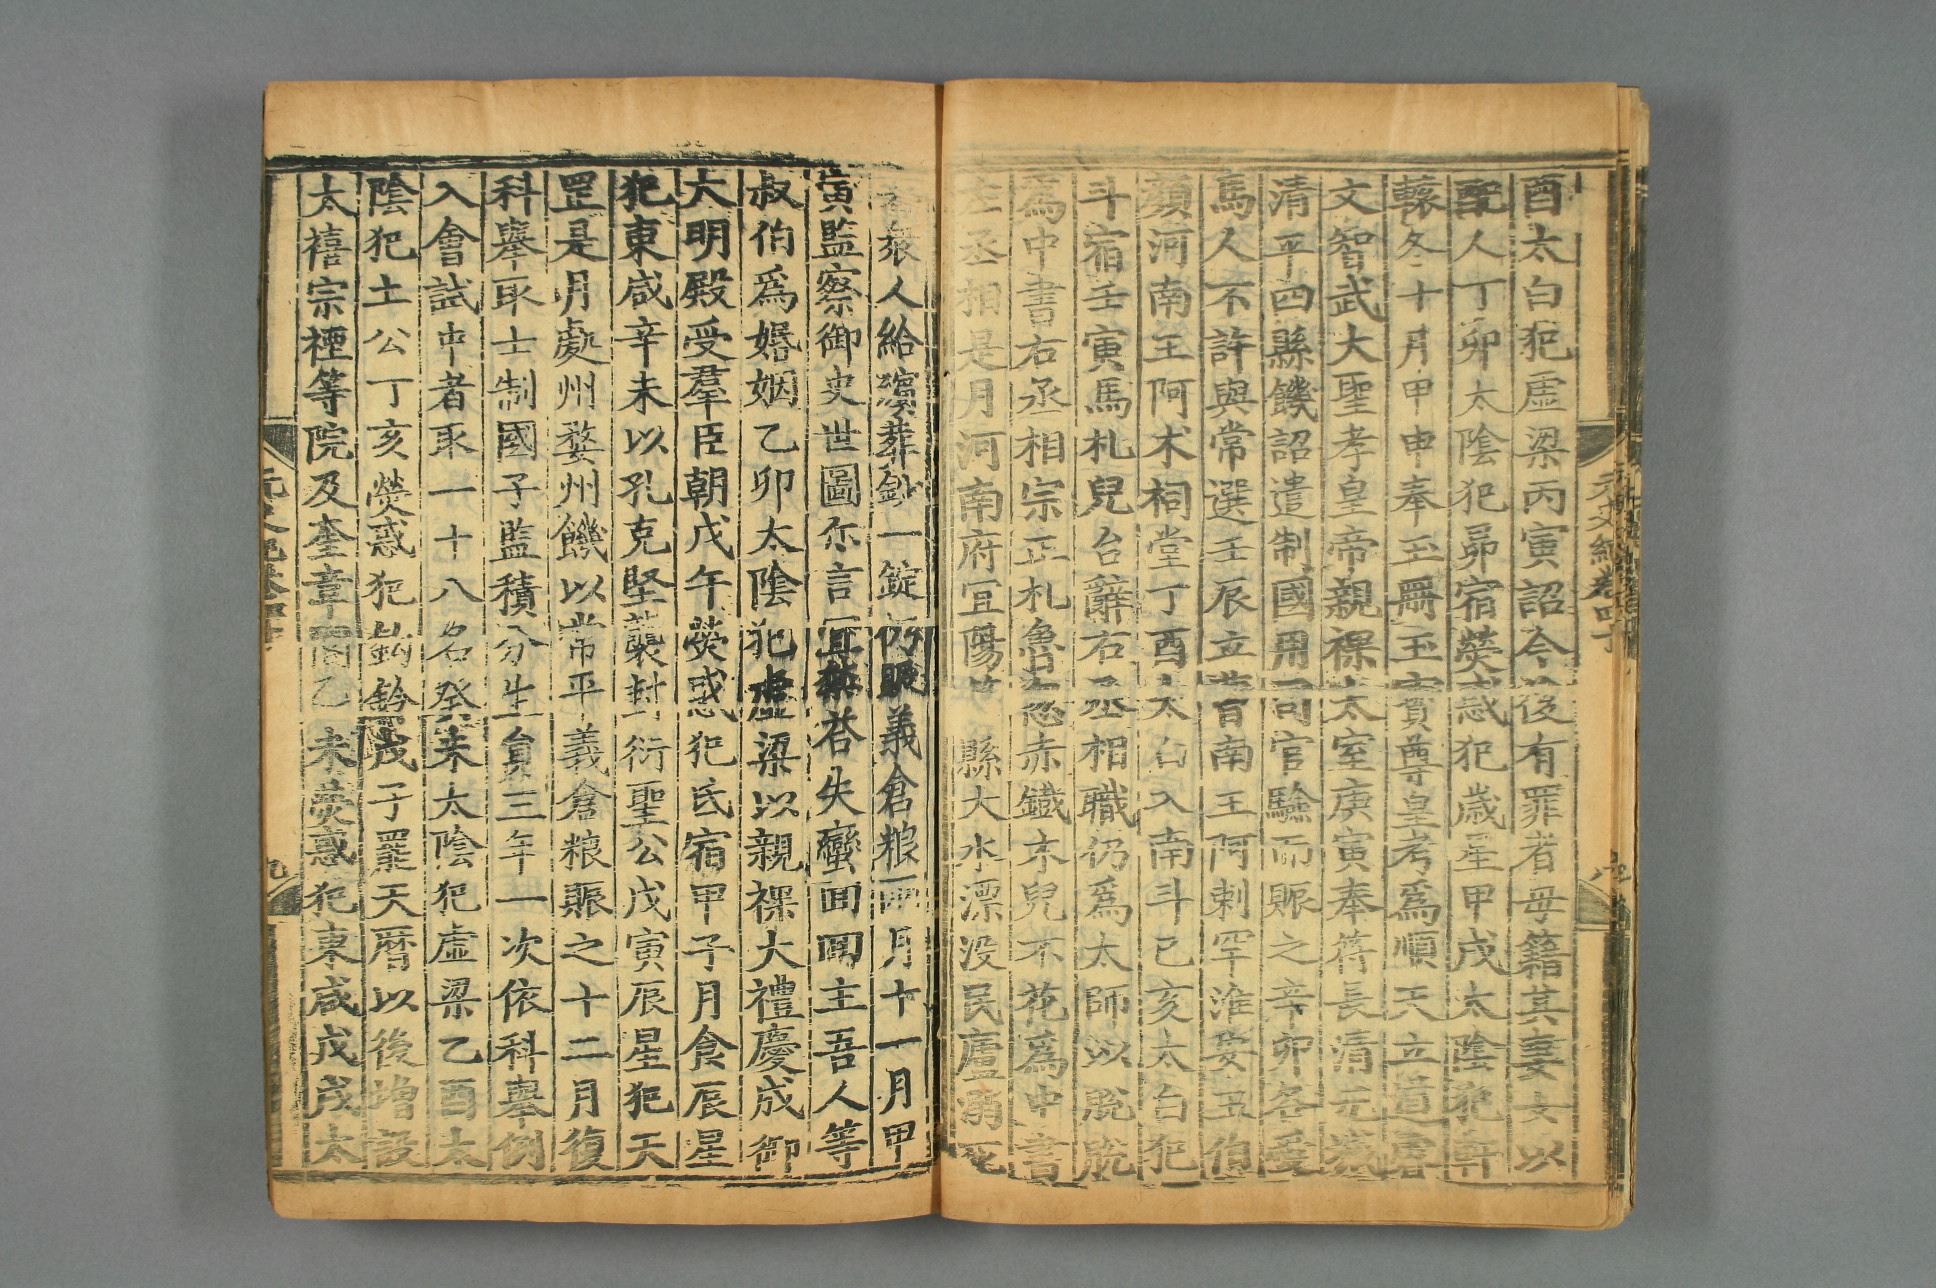 酉太白犯虛梁丙寅詔今後有罪者毋籍其妻女以
配人丁卯太陰犯昴宿熒惑犯歲星甲戌太陰犯軒
轅冬十月甲申奉玉冊玉寶尊皇考爲順天立道睿
文智武大聖孝皇帝親祼太室庚寅奉符長清元城
清平四縣饑詔遣制國用司官驗而賑之辛卯各愛
馬人不許與常選壬辰立曹南王阿剌罕淮安王伯
顏河南王阿术祠堂丁酉太白入南斗己亥太白犯
斗宿壬寅馬札兒台辭右丞相職仍爲太師以脫脫
爲中書右丞相宗正札魯忽赤鐵木兒不花爲中書
左丞相是月河南府宜陽等縣大水漂没民廬溺死
者衆人給殯葬鈔一錠仍賑義倉粮兩月十一月甲
寅監察御史世圖尔言宜禁荅失蠻囬囬主吾人等
叔伯爲婚姻乙卯太陰犯虛梁以親祼大禮慶成御
大明殿受羣臣朝戊午熒惑犯氐宿甲子月食辰星
犯東咸辛未以孔克堅襲封衍聖公戊寅辰星犯天
罡是月處州婺州饑以常平義倉粮賑之十二月復
科舉取士制國子監積分生員三年一次依科舉例
入會試中者取一十八名癸未太陰犯虛梁乙酉太
陰犯土公丁亥熒惑犯鈎鈐戊子罷天曆以後增設
太禧宗禋等院及奎章閣乙未熒惑犯東咸戊戌太
元史紀卷四十
九